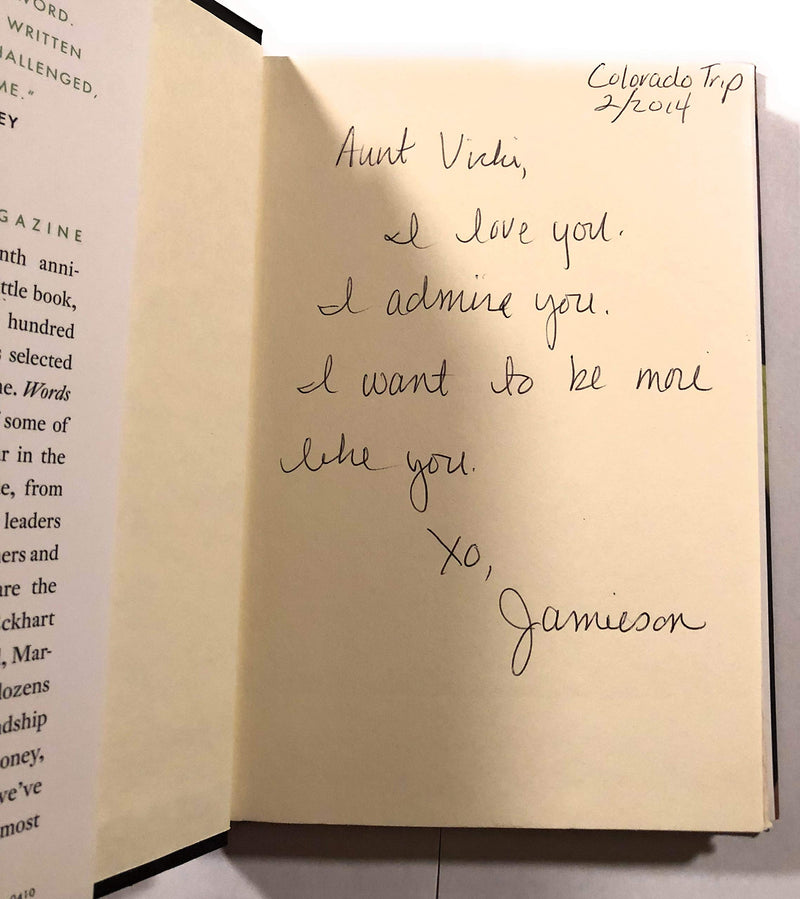 WORD.
WRITTEN
HALLENGED,
ME."
EY
GAZINE
nth anni-
ttle book,
hundred
selected
ne. Words
some of
r in the
e, from
leaders
ers and
are the
ckhart
, Mar-
dozens
dship
oney,
we've
most
0410
Colorado Trip
2/2014
Aunt Vicki,
I love you.
I admire you.
I want to be more
like you.
XO,
Jamieson